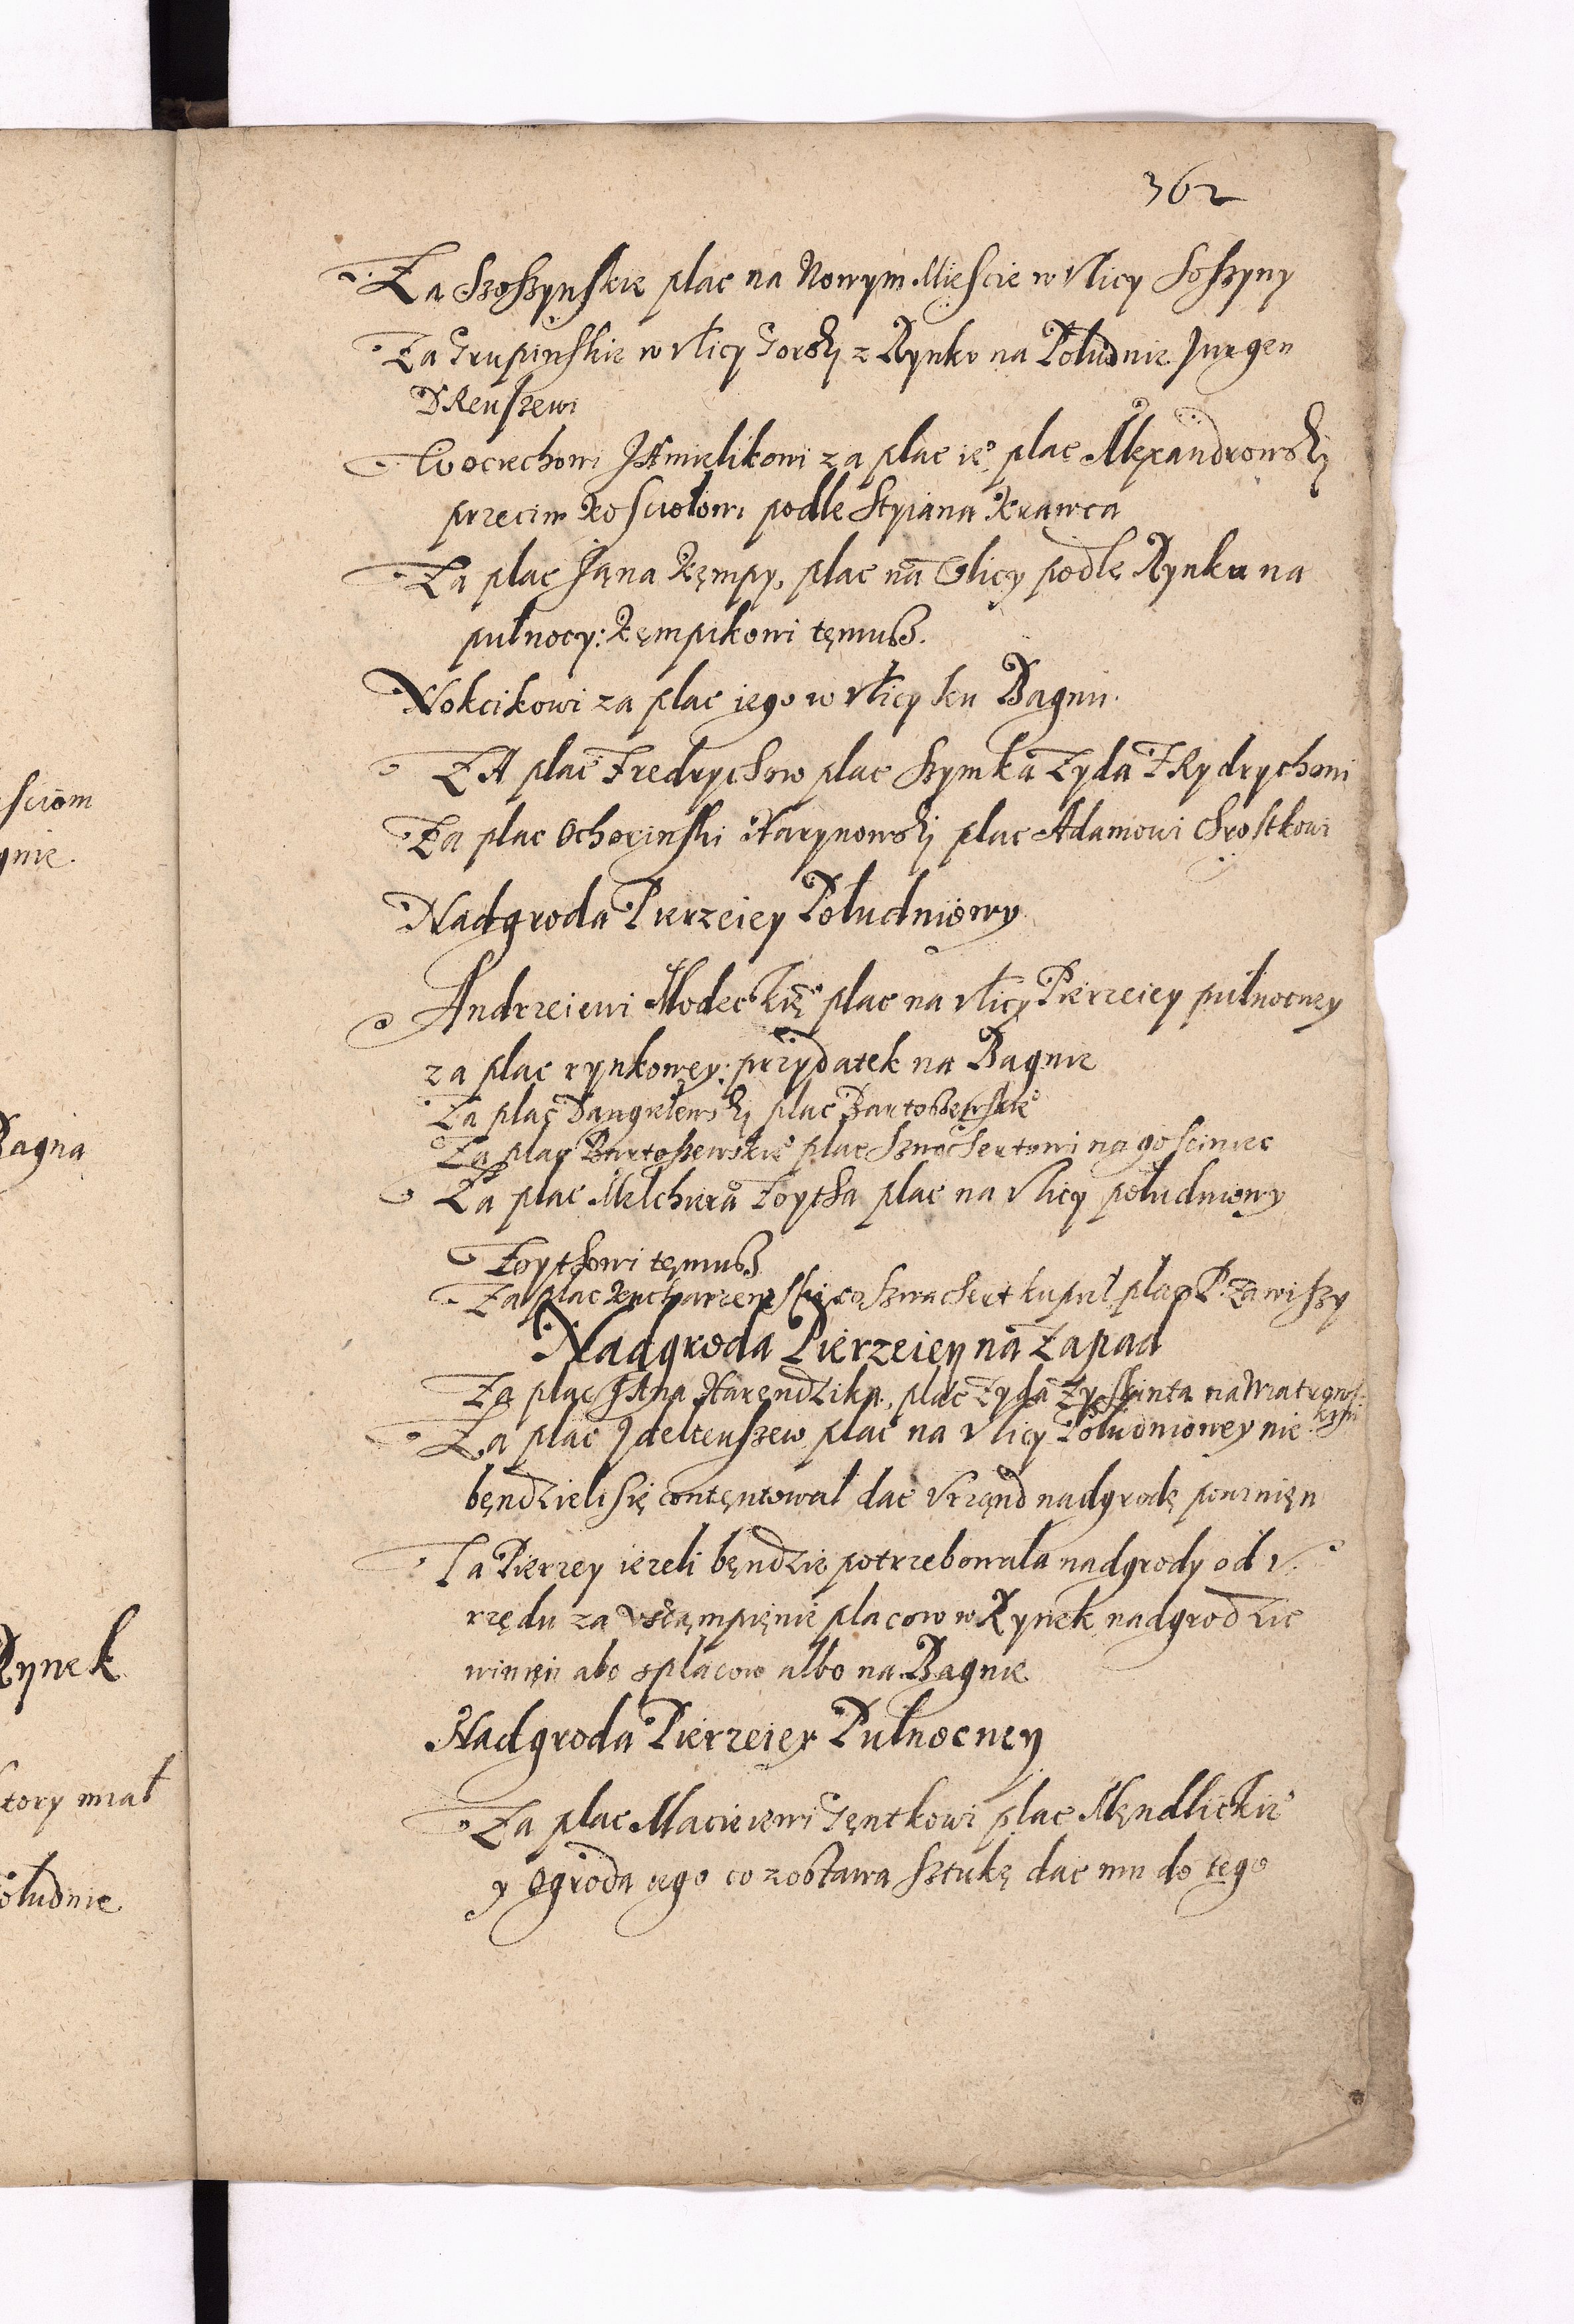 362
Za Szoszynskie plac na Nowym Miescie w Vlicy Soszyny
Za Grupinskie w Vlicy Gorski z Rynku na Południe Jurgen
DReuszewi
Wociechowi JAmielikowi za plac ie° plac Alexandrowski
przeciw Kosciołowi podle Stpiana Krawca
Za plac Jana Kęmpy, plac na Vlicy podle Rynku na
pułnocy: Kęmpikowi tęmusz.
Nokcikowi za plac iego w Vlicy ku Bagnu.
ZA plac Fredrychow plac Szymka Zyda FRydrychowi
Za plac Ochocinski Narynowski plac Adamowi Chrostkowi
Nadgroda Pierzeiey Południowy
Andrzeiewi Modeckie° plac na Vlicy Pierzeiey pułnocney
za plac rynkowey: przydatek na Bagnie
Za plac Dangielewski plac Bartoszewskie°
Za plac Bartoszewskie° plac Sznochertowi na gosciniec
Za plac Melchiera Zoytha plac na Vlicy południowy
Zoythowi tęmusz
Za plac Kucharzewski co Sznochert kupuł plac P. Zawiszy
Nadgroda Pierzeiey na Zapad
Za plac JAna Narendzika, plac Zyda na Wiatrowsk
Za plac plac na Vlicy Południowey nie
będzieli się contęntował dac Vrząnd nadgrodę powinięn
Ta Pierzey iezeli bęndzie potrzebowała nadgrody od V
rzędu za Vstąmpięnie placow w Rynek nadgrodzic
winięn abo splacow albo na Bagnie
Nadgroda Pierzeiey Pułnocney
Za plac Macieiewi Gęntkowi plac Męndlickie°
y Ogroda iego co zostawa sztukę dac mu do tego
sciom
gnie.
Bagna
Rynek
ktory miał
ołudnie